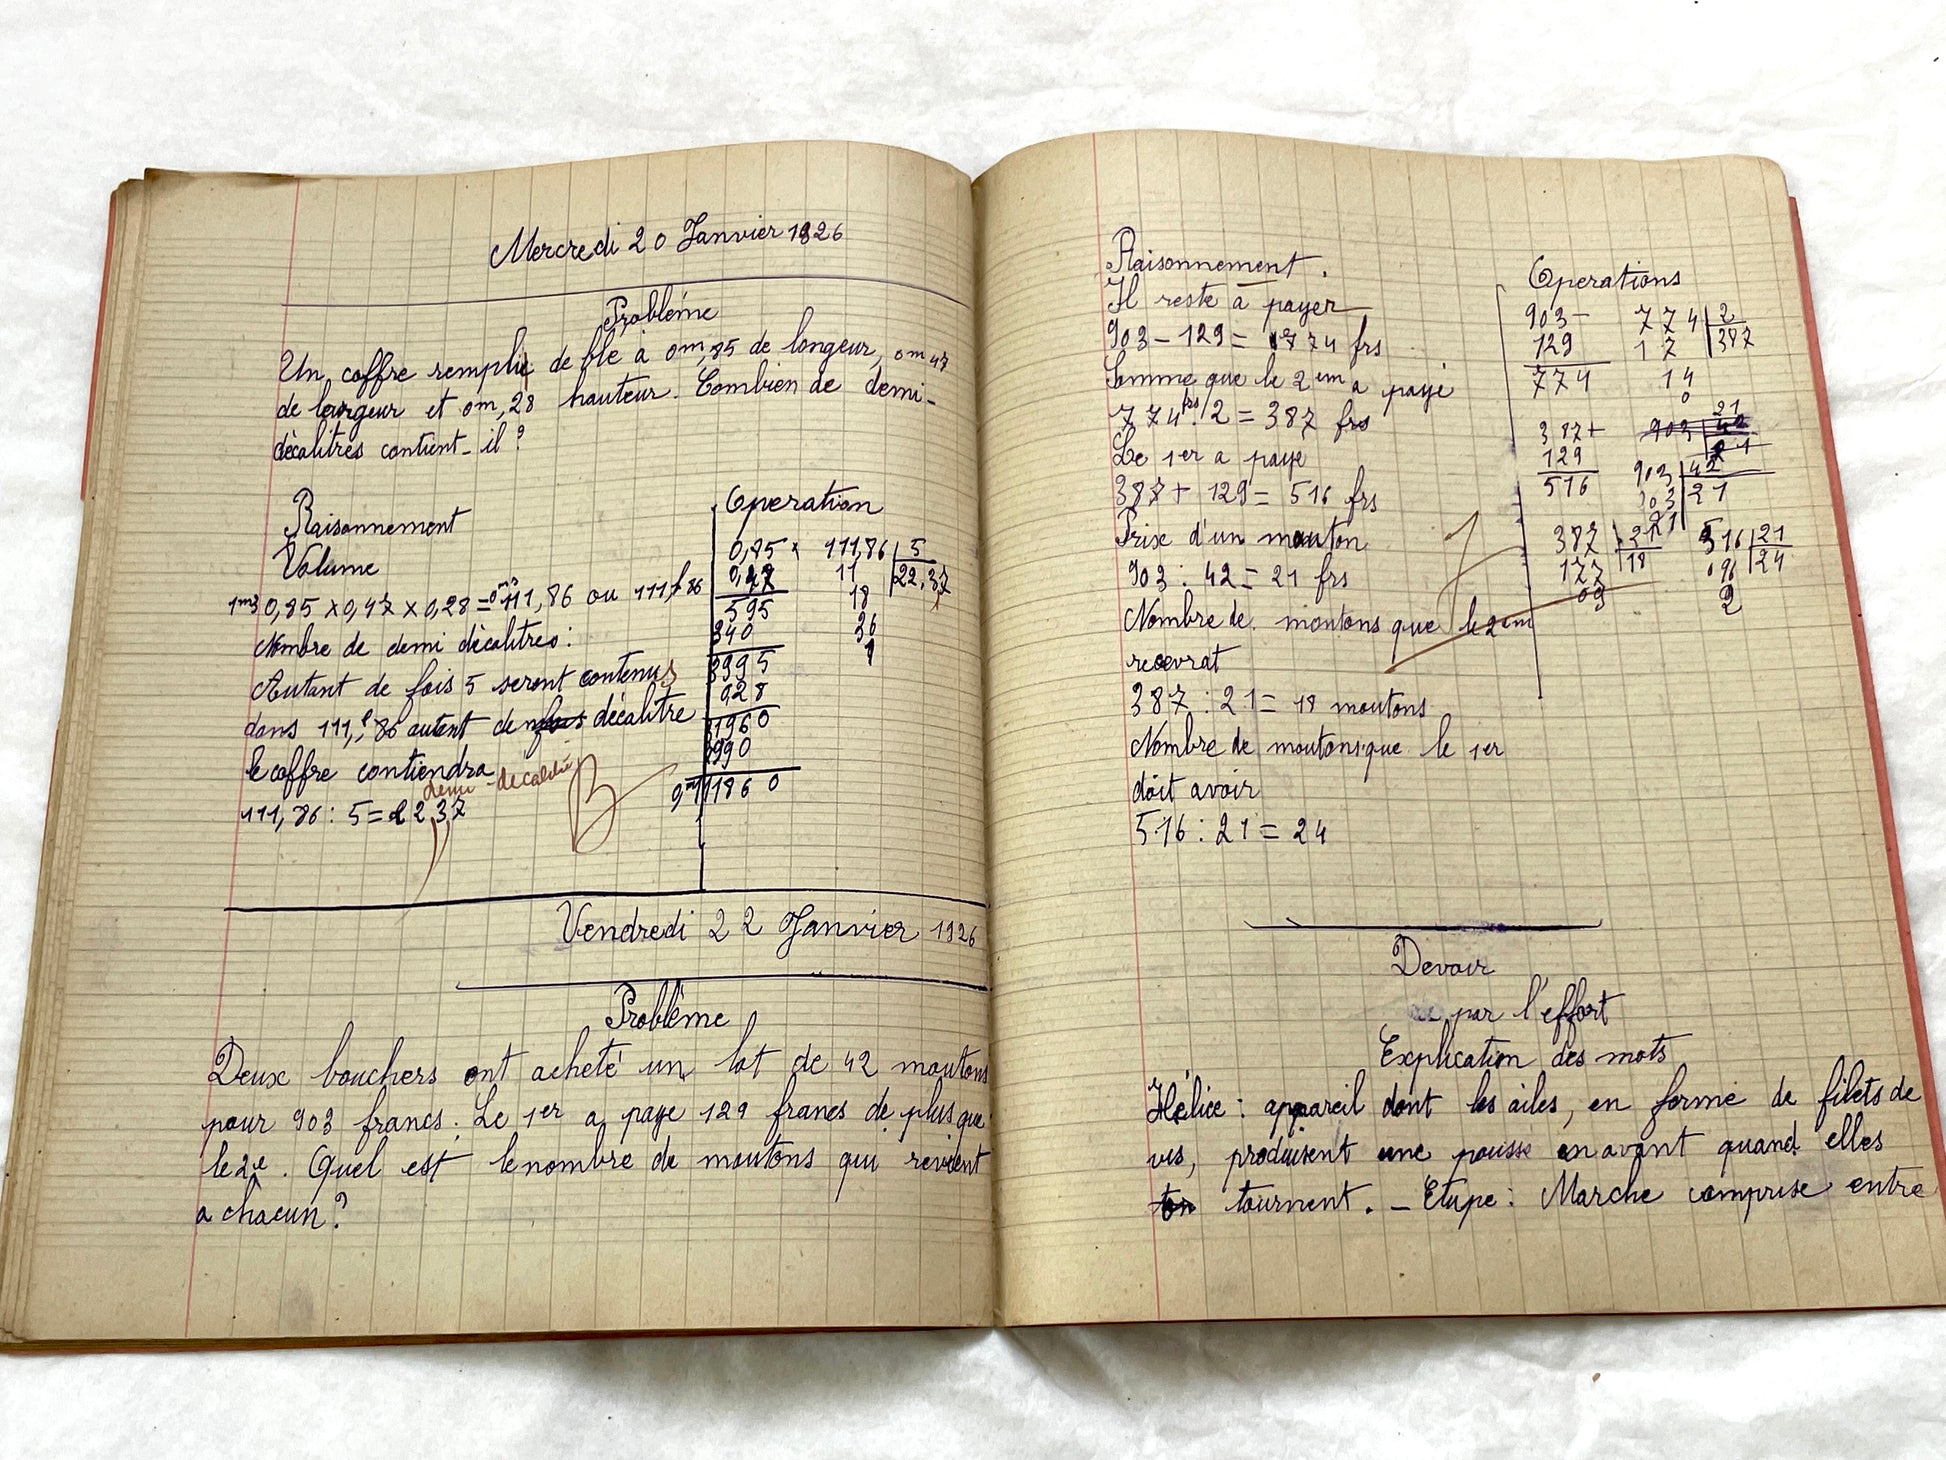 Mercredi 20 Janvier 1926
Probléme
Un coffre remplie de blé à 0m,85 de longeur, 0m47
de largeur et 0m,28 hauteur. Combien de demi-
décalitres contient-il?
Raisonnement
Volume
1m3 0,85 x 0,47 x 0,28 = 0m3111,86 ou 111,l86
Nombre de demi décalitres:
Autant de fois 5 seront contenus
dans 111,l86 autent de décalitre
le coffre contiendra
demi-décalitre
111,86 : 5 = 22 37
B
Operation
0,85 x 111,86 | 5
0,47 11 22,37
595 18
340 36
3995 1
028
31960
7990
0m3111860
Vendredi 22 Janvier 1926
Problème
Deux bouchers ont acheté un lot de 42 moutons
pour 903 francs. Le 1er a paye 129 francs de plus que
le 2e. Quel est le nombre de moutons qui revient
a chacun?
Raisonnement.
Il reste à payer
903 - 129 = 774 frs
Somme que le 2em a payé
774frs : 2 = 387 frs
Le 1er a paye
387 + 129 = 516 frs
Prix d'un mouton
903 : 42 = 21 frs
Nombre de moutons que le 2em
recevrat
387 : 21 = 18 moutons
Nombre de moutons que le 1er
doit avoir
516 : 21 = 24
Operations
903 - 774 | 2
129 17 387
774 14
0
387 +
129 903 | 42
516 21
387 | 21 516 | 21
177 18 096 24
09
Devoir
par l'effort
Explication des mots
Hélice : appareil dont les ailes, en forme de filets de
vis, produisent une pousse en avant quand elles
tournent. - Etape : Marche comprise entre